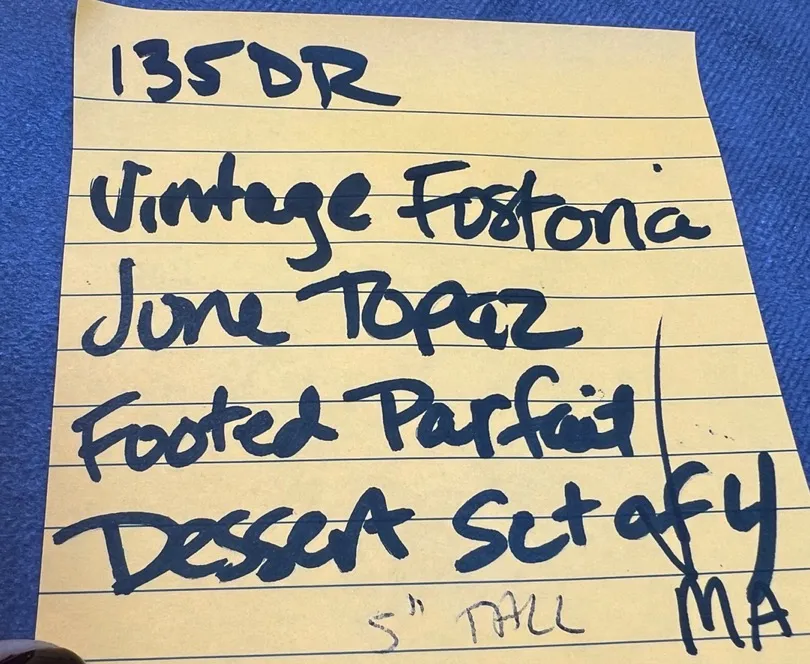 135DR
Vintage Fostoria
June Topaz
Footed Parfait
Dessert Set of 4
MA
5" TALL